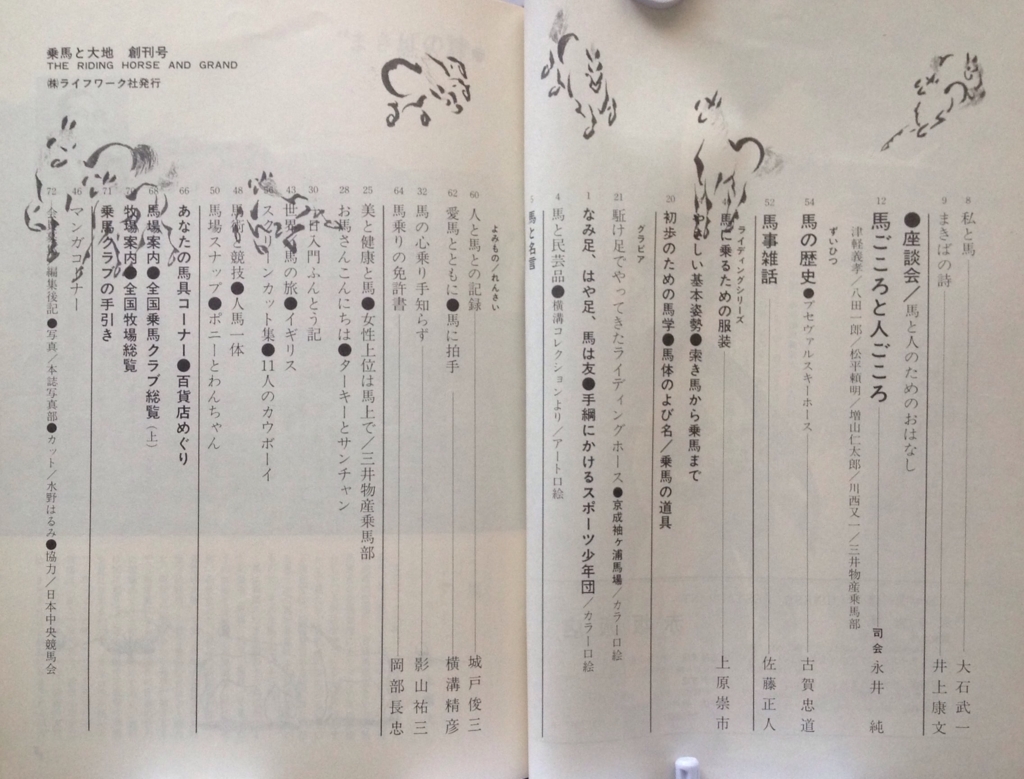 8 私と馬 大石武一
9 まきばの詩 井上康文
●座談会／馬と人のためのおはなし
12 馬ごころと人ごころ 司会 永井 純
津軽義孝／八田一郎／松平頼明／増山仁太郎／川西又一／三井物産乗馬部
ずいひつ
54 馬の歴史●プセヴァルスキーホース 古賀忠道
52 馬事雑話 佐藤正人
ライディングシリーズ
馬に乗るための服装 上原崇市
やさしい基本姿勢●索き馬から乗馬まで
20 初歩のための馬学●馬体のよび名／乗馬の道具
グラビア
21 駈け足でやってきたライディングホース●京成袖ヶ浦馬場／カラー口絵
1 なみ足、はや足、馬は友●手綱にかけるスポーツ少年団／カラー口絵
4 馬と民芸品●横溝コレクションより／アート口絵
馬と名言
乗馬と大地 創刊号
THE RIDING HORSE AND GRAND
㈱ライフワーク社発行
よみもの／れんさい
60 人と馬との記録 城戸俊三
62 愛馬とともに●馬に拍手 横溝精彦
32 馬の心乗り手知らず 影山祐三
64 馬乗りの免許書 岡部長忠
25 美と健康と馬●女性上位は馬上で／三井物産乗馬部
28 お馬さんこんにちは●ターキーとサンチャン
30 日入門ふんとう記
43 世界馬の旅●イギリス
56 スクリーンカット集●11人のカウボーイ
48 馬術と競技●人馬一体
50 馬場スナップ●ポニーとわんちゃん
66 あなたの馬具コーナー●百貨店めぐり
68 馬場案内●全国乗馬クラブ総覧（上）
70 牧場案内●全国牧場総覧
71 乗馬クラブの手引き
46 マンガコーナー
72 編集後記●写真／本誌写真部●カット／水野はるみ●協力／日本中央競馬会